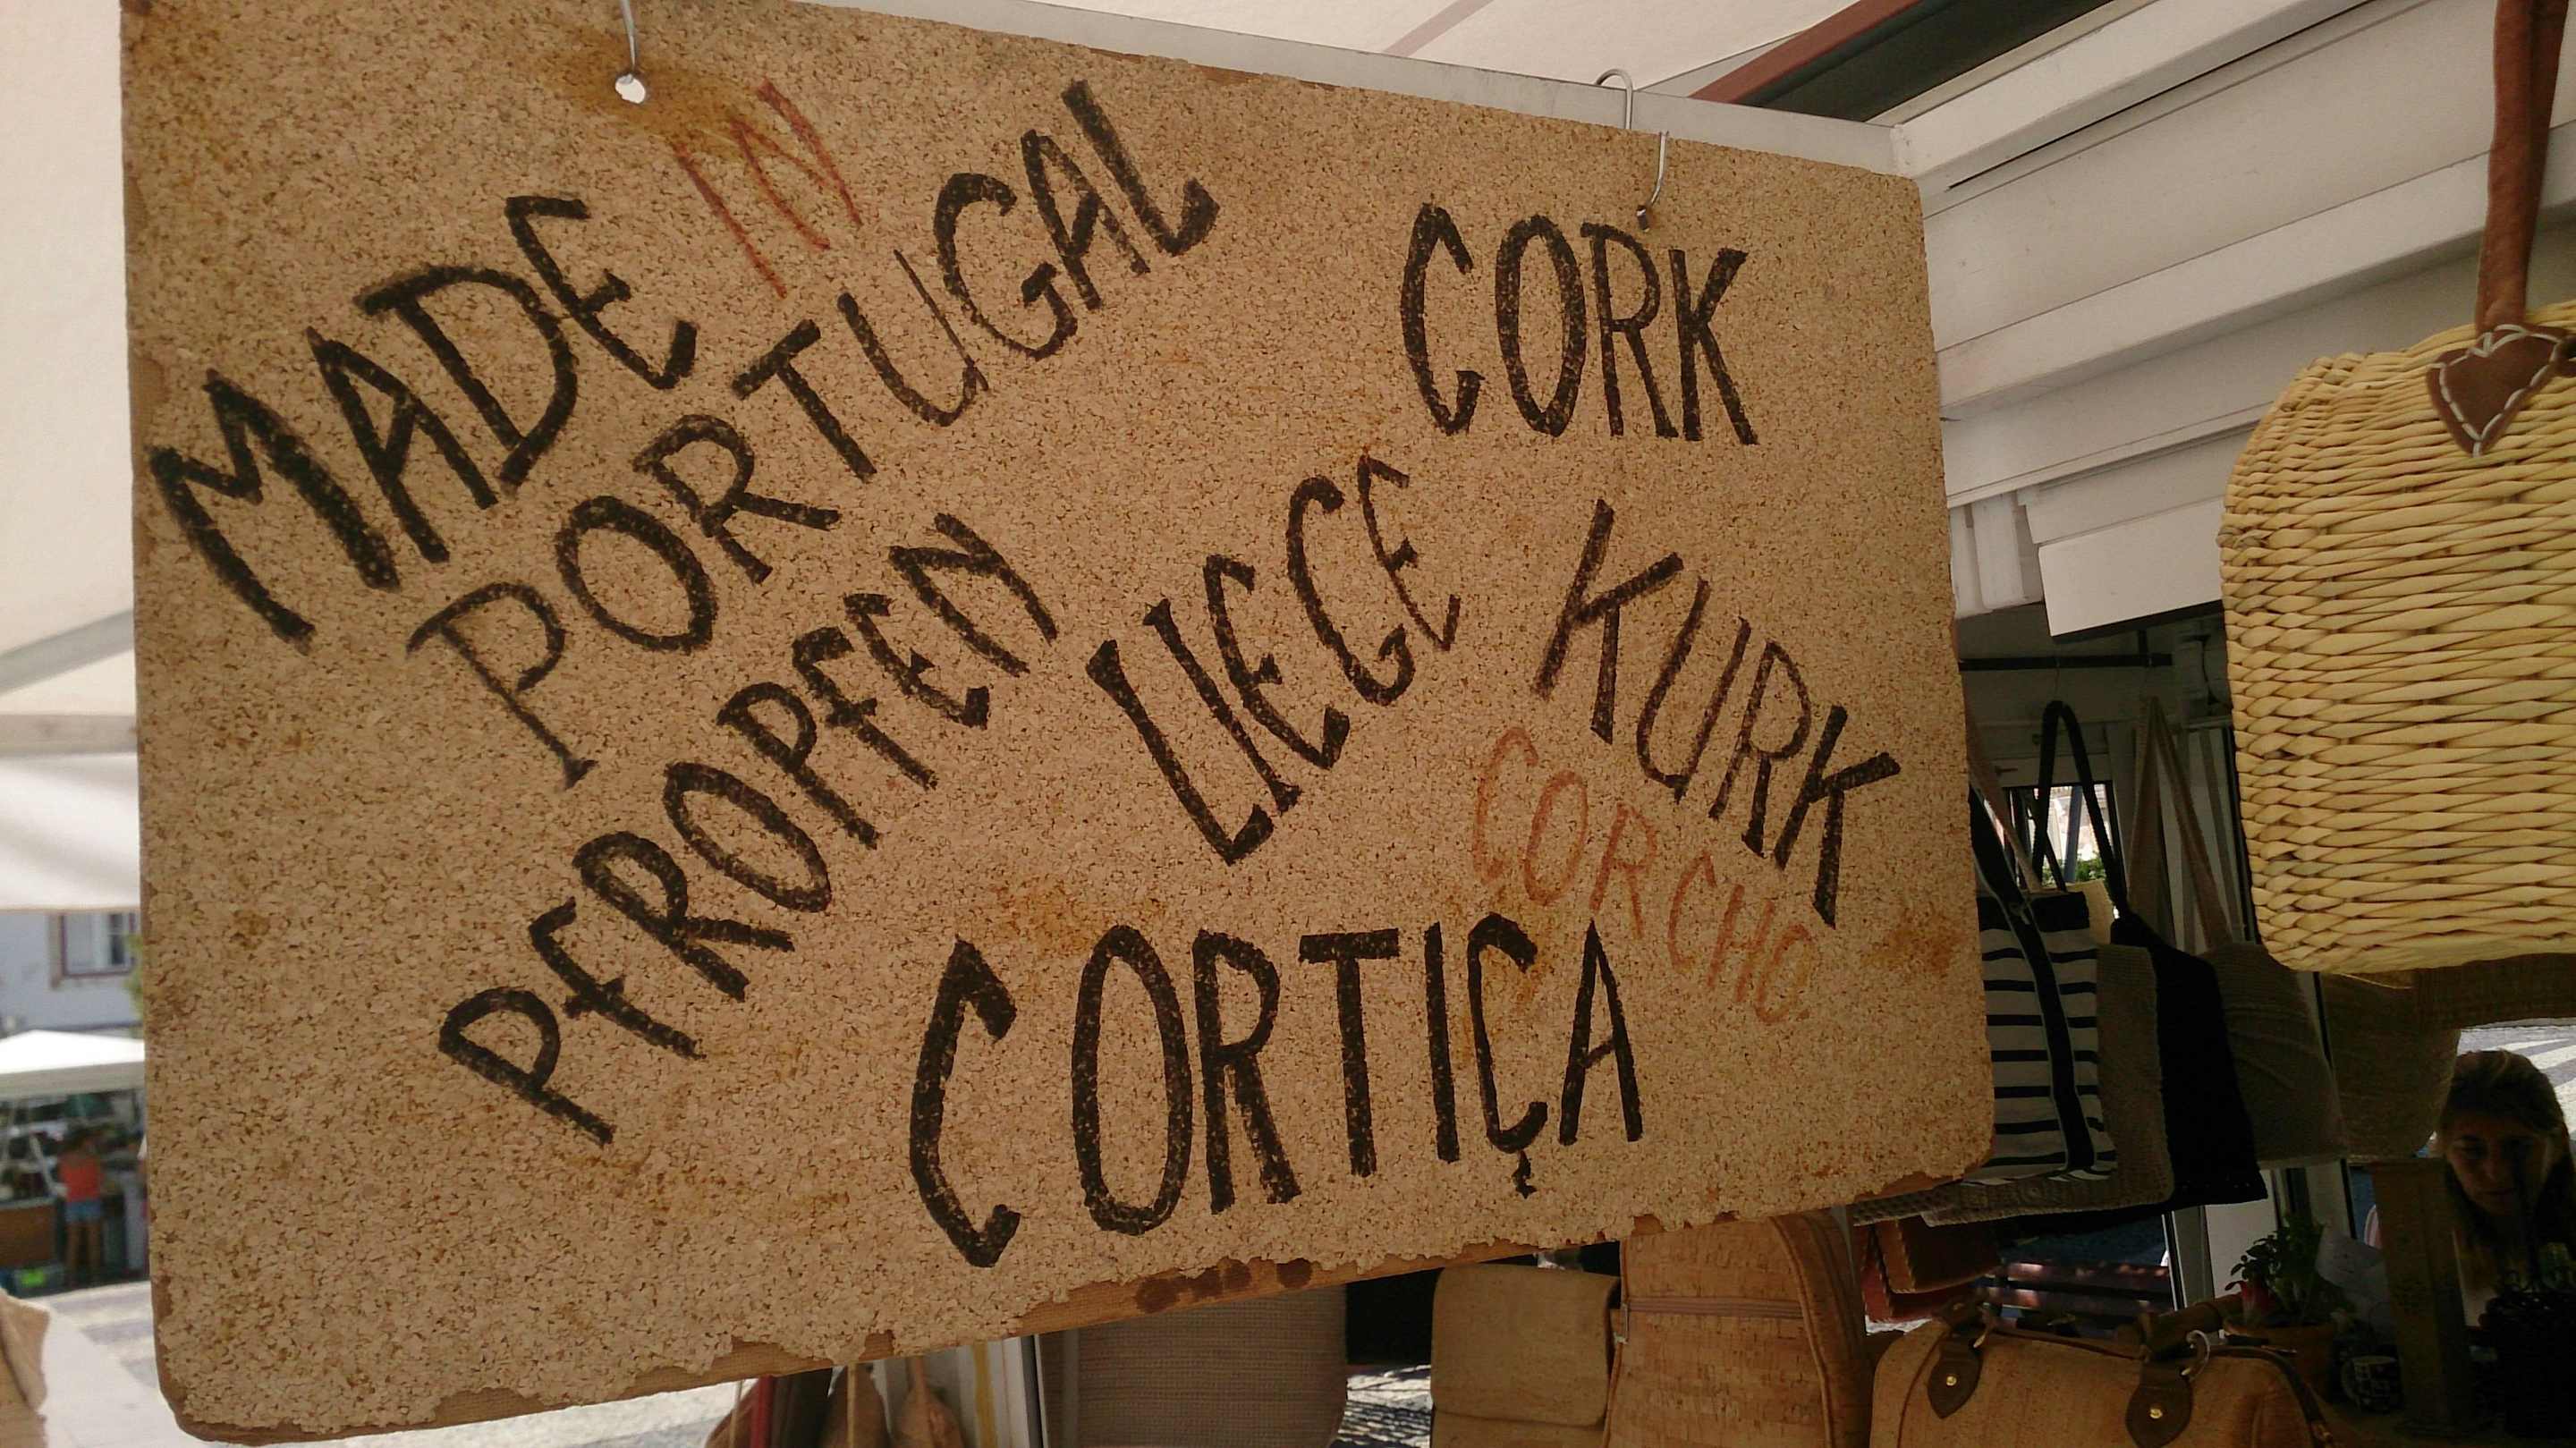 MADE IN
PORTUGAL
CORK
PFROPFEN
LIEGE
KURK
CORCHO
CORTIÇA